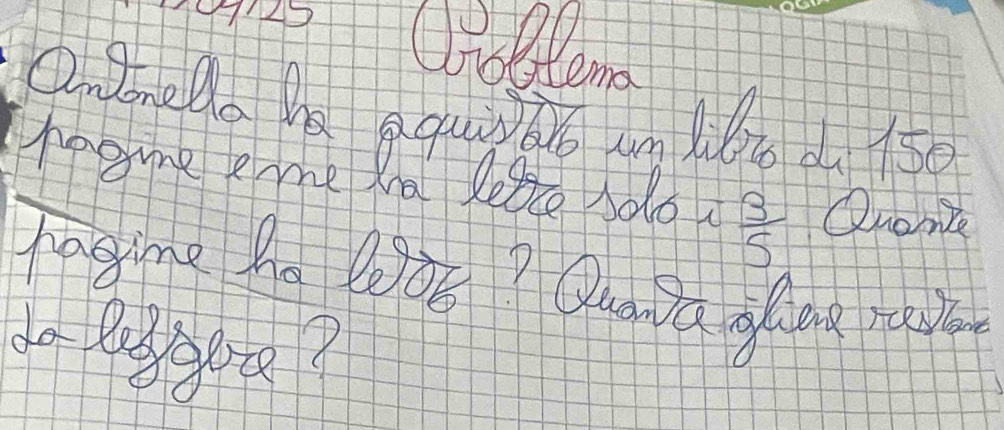 04/25
Problema
Antonella ha aquistato un libro di 150
pagine e ne ha lette solo i 3/5. Quante
pagine ha letto? Quante gliene restano
da leggere?